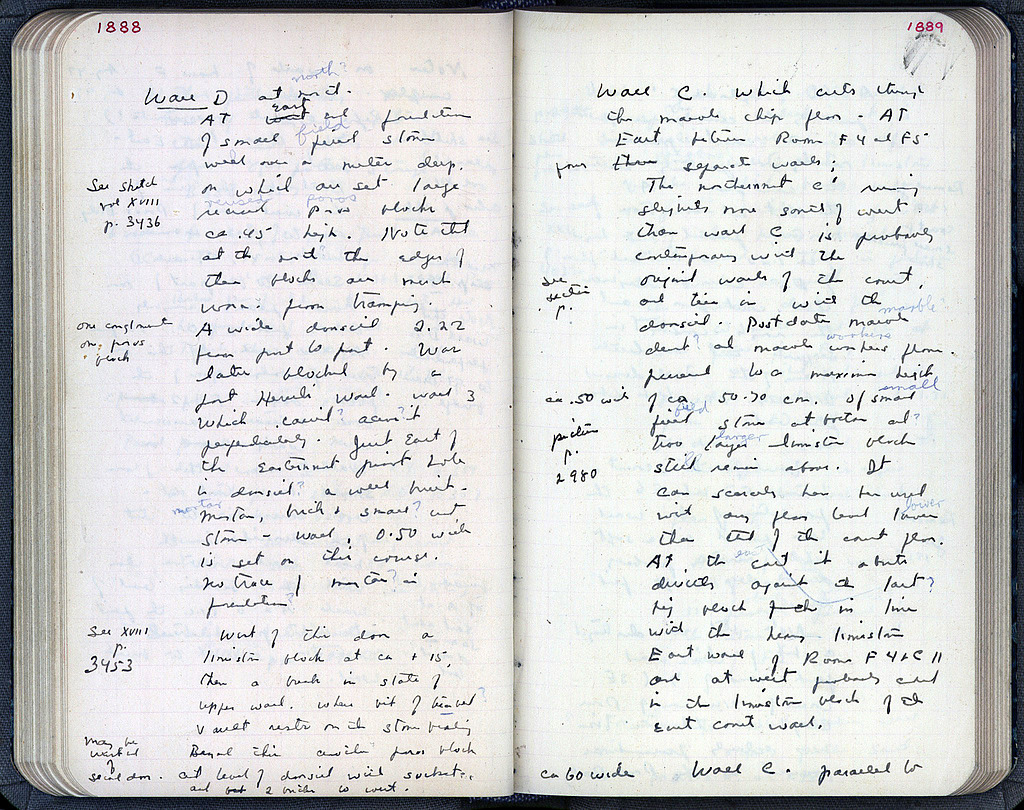 1888
Wall D at north?
north.
AT east end foundation
of small field stones
went over a meter deep.
on which are set large
See sketch
vol XVIII
p. 3436
reused poros blocks
ca .45 high. Note that
at the north the edges of
these blocks are much
worn from tramping
A wide doorsill 2.22
one conglomerate
one poros
block
from post to post. Was
later blocked by a
Which
perpendicularly. Just East of
the Easternmost pivot hole
in doorsill? a well built
mortar, brick & small? cut
mortar
stone wall, 0.50 wide
is set on this course.
No trace of mortar? in
foundation?
See XVIII
p.
3453
West of this door a
limestone block at ca + 15,
then a break in state of
upper wall. Where bit of
vault rests on the stone
may be
of
second door.
Beyond this another poros block
at level of doorsill with
1889
Wall C. Which cuts through
the marble chip floor. AT
East between Room F 4 and F5
four three separate walls;
The northernmost C' running
slightly more south of west
than wall C is probably
contemporary with the
original walls of the court,
See
section
p.
and ties in with the
doorsill. Postdates marble
marble
dent? and marble workers floor.
workers
preserved to a maximum height
ca .50 wide of ca 50-70 cm. Of small
small
field stones at bottom and?
field
two larger limestone blocks
larger
picture
p.
2980
still remain above. It
can scarcely have been used
with any floor level lower
lower
than that of the court floor.
AT the east it abuts
east
directly against a last?
big block in line
with the heavy limestone
East wall of Room F 4 + C 11
and at west probably ended
in the limestone block of the
East court wall.
ca 60 wide Wall C. parallel to